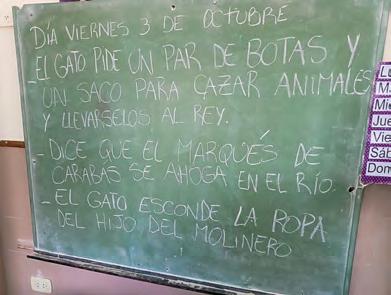 DÍA VIERNES 3 DE OCTUBRE
_ EL GATO PIDE UN PAR DE BOTAS Y
UN SACO PARA CAZAR ANIMALES
Y LLEVARSELOS AL REY.
- DICE QUE EL MARQUÉS DE
CARABAS SE AHOGA EN EL RÍO.
- EL GATO ESCONDE LA ROPA
DEL HIJO DEL MOLINERO.
Lu
Ma
Mié
Jue
Vie
Sáb
Dom